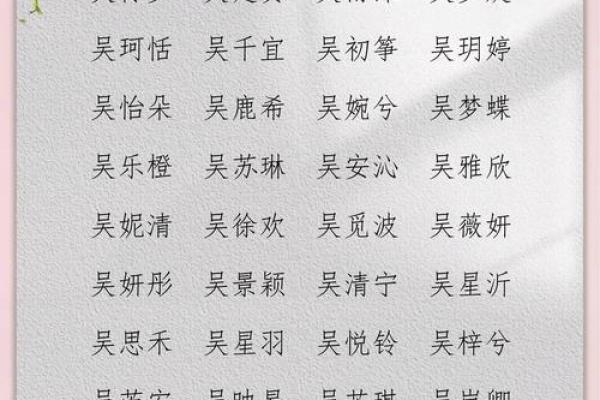 吴珂恬 吴千宜 吴初筝 吴玥婷
吴怡朵 吴鹿希 吴婉兮 吴梦蝶
吴乐橙 吴苏琳 吴安沁 吴雅欣
吴妮清 吴徐欢 吴觅波 吴薇妍
吴妍彤 吴景颖 吴清宁 吴星沂
吴思禾 吴星羽 吴悦铃 吴梓兮